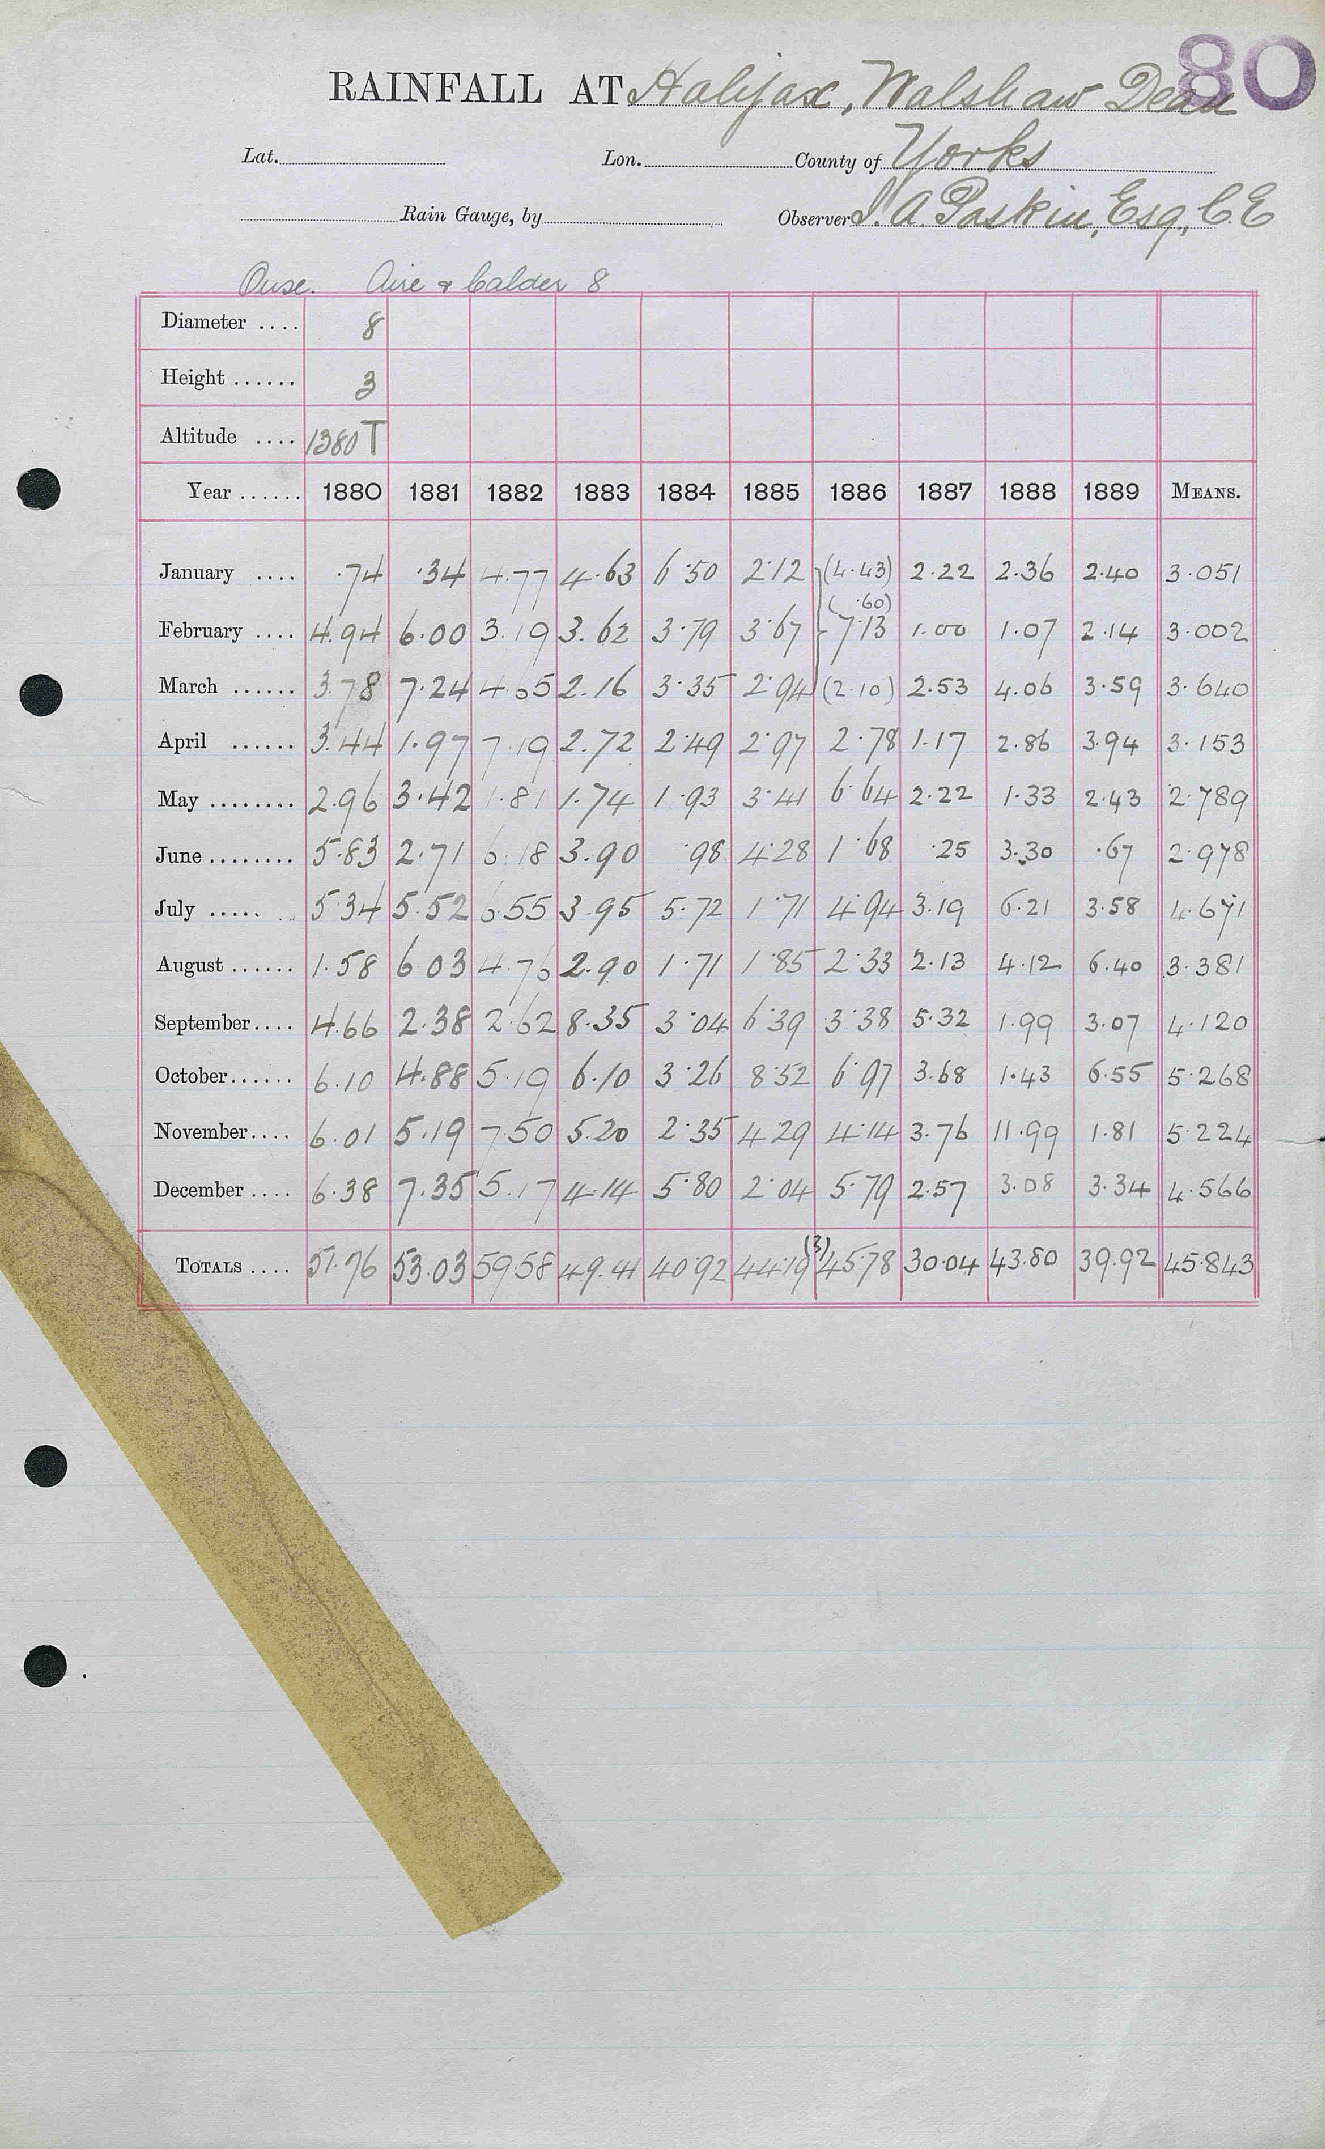 80
RAINFALL AT Halifax, Walshaw Dean
Lat. Lon. County of Yorks
Rain Gauge, by Observer J. A. Paskin, Esq., C.E
Ouse. Aire & Calder 8
Diameter .... 8
Height ...... 3
Altitude .... 1380 T
Year ...... 1880 1881 1882 1883 1884 1885 1886 1887 1888 1889 MEANS.
January .... .74 .34 4.77 4.63 6.50 2.12 (4.43) 2.22 2.36 2.40 3.051
(.60)
February .... 4.94 6.00 3.19 3.62 3.79 3.67 7.13 1.00 1.07 2.14 3.002
March ...... 3.78 7.24 4.65 2.16 3.35 2.94 (2.10) 2.53 4.06 3.59 3.640
April ...... 3.44 1.97 7.19 2.72 2.49 2.97 2.78 1.17 2.86 3.94 3.153
May ........ 2.96 3.42 1.81 1.74 1.93 3.41 6.64 2.22 1.33 2.43 2.789
June ........ 5.83 2.71 6.18 3.90 .98 4.28 1.68 .25 3.30 .67 2.978
July ..... 5.34 5.52 6.55 3.95 5.72 1.71 4.94 3.19 6.21 3.58 4.671
August ...... 1.58 6.03 4.76 2.90 1.71 1.85 2.33 2.13 4.12 6.40 3.381
September .... 4.66 2.38 2.62 8.35 3.04 6.39 3.38 5.32 1.99 3.07 4.120
October ...... 6.10 4.88 5.19 6.10 3.26 8.52 6.97 3.68 1.43 6.55 5.268
November .... 6.01 5.19 7.50 5.20 2.35 4.29 4.14 3.76 11.99 1.81 5.224
December .... 6.38 7.35 5.17 4.14 5.80 2.04 5.79 2.57 3.08 3.34 4.566
TOTALS .... 51.76 53.03 59.58 49.41 40.92 44.19 (3) 45.78 30.04 43.80 39.92 45.843